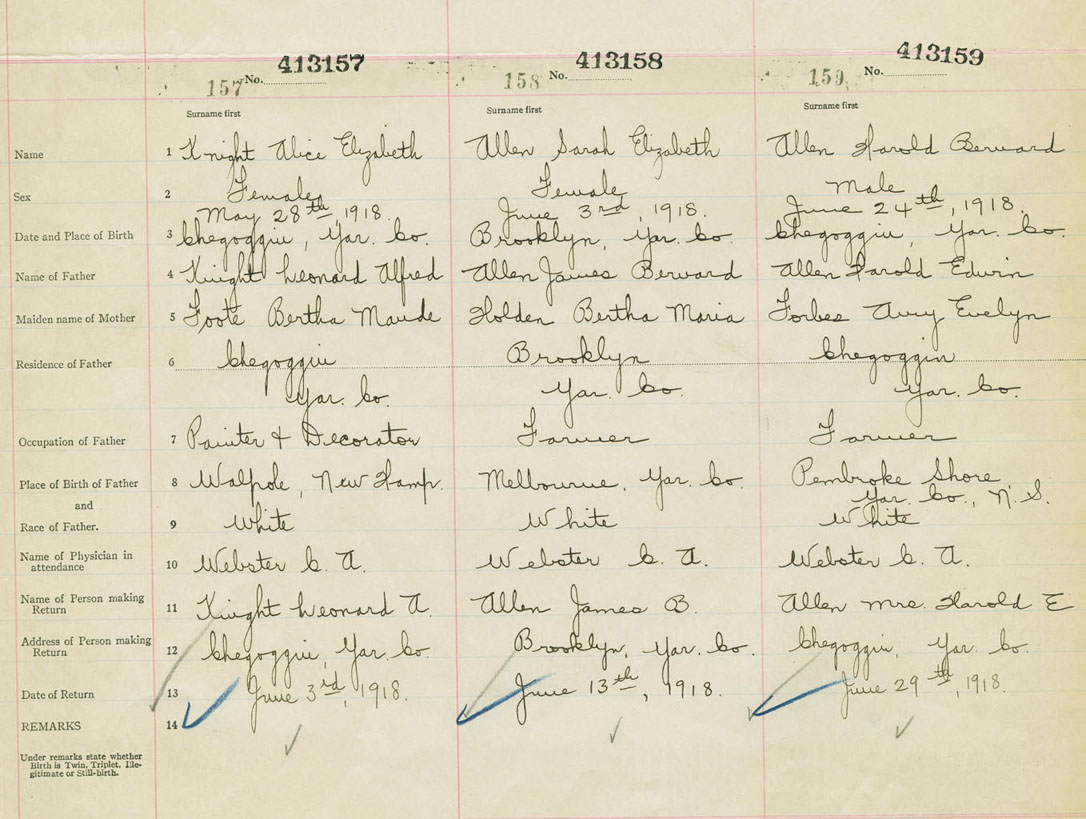 413157 413158 413159
157 No. 158 No. 159 No.
Surname first Surname first Surname first
Name 1 Knight Alice Elizabeth Allen Sarah Elizabeth Allen Harold Berward
Sex 2 Female Female Male
May 28th, 1918. June 3rd, 1918. June 24th, 1918.
Date and Place of Birth 3 Chegoggin, Yar. Co. Brooklyn, Yar. Co. Chegoggin, Yar. Co.
Name of Father 4 Knight Leonard Alfred Allen James Berward Allen Harold Edwin
Maiden name of Mother 5 Foote Bertha Maude Holden Bertha Maria Forbes Evelyn
Residence of Father 6 Chegoggin Brooklyn Chegoggin
Yar. Co. Yar. Co. Yar. Co.
Occupation of Father 7 Painter & Decorator Farmer Farmer
Place of Birth of Father 8 Walpole, New Hamp. Melbourne, Yar. Co. Pembroke Shore
and Yar. Co., N.S.
Race of Father. 9 White White White
Name of Physician in
attendance 10 Webster C. A. Webster C. A. Webster C. A.
Name of Person making
Return 11 Knight Leonard A. Allen James B. Allen Mrs. Harold E
Address of Person making
Return 12 Chegoggin, Yar. Co. Brooklyn, Yar. Co. Chegoggin, Yar. Co.
Date of Return 13 June 3rd, 1918. June 13th, 1918. June 29th, 1918.
REMARKS 14
Under remarks state whether
Birth is Twin, Triplet, Ille-
gitimate or Still-birth.